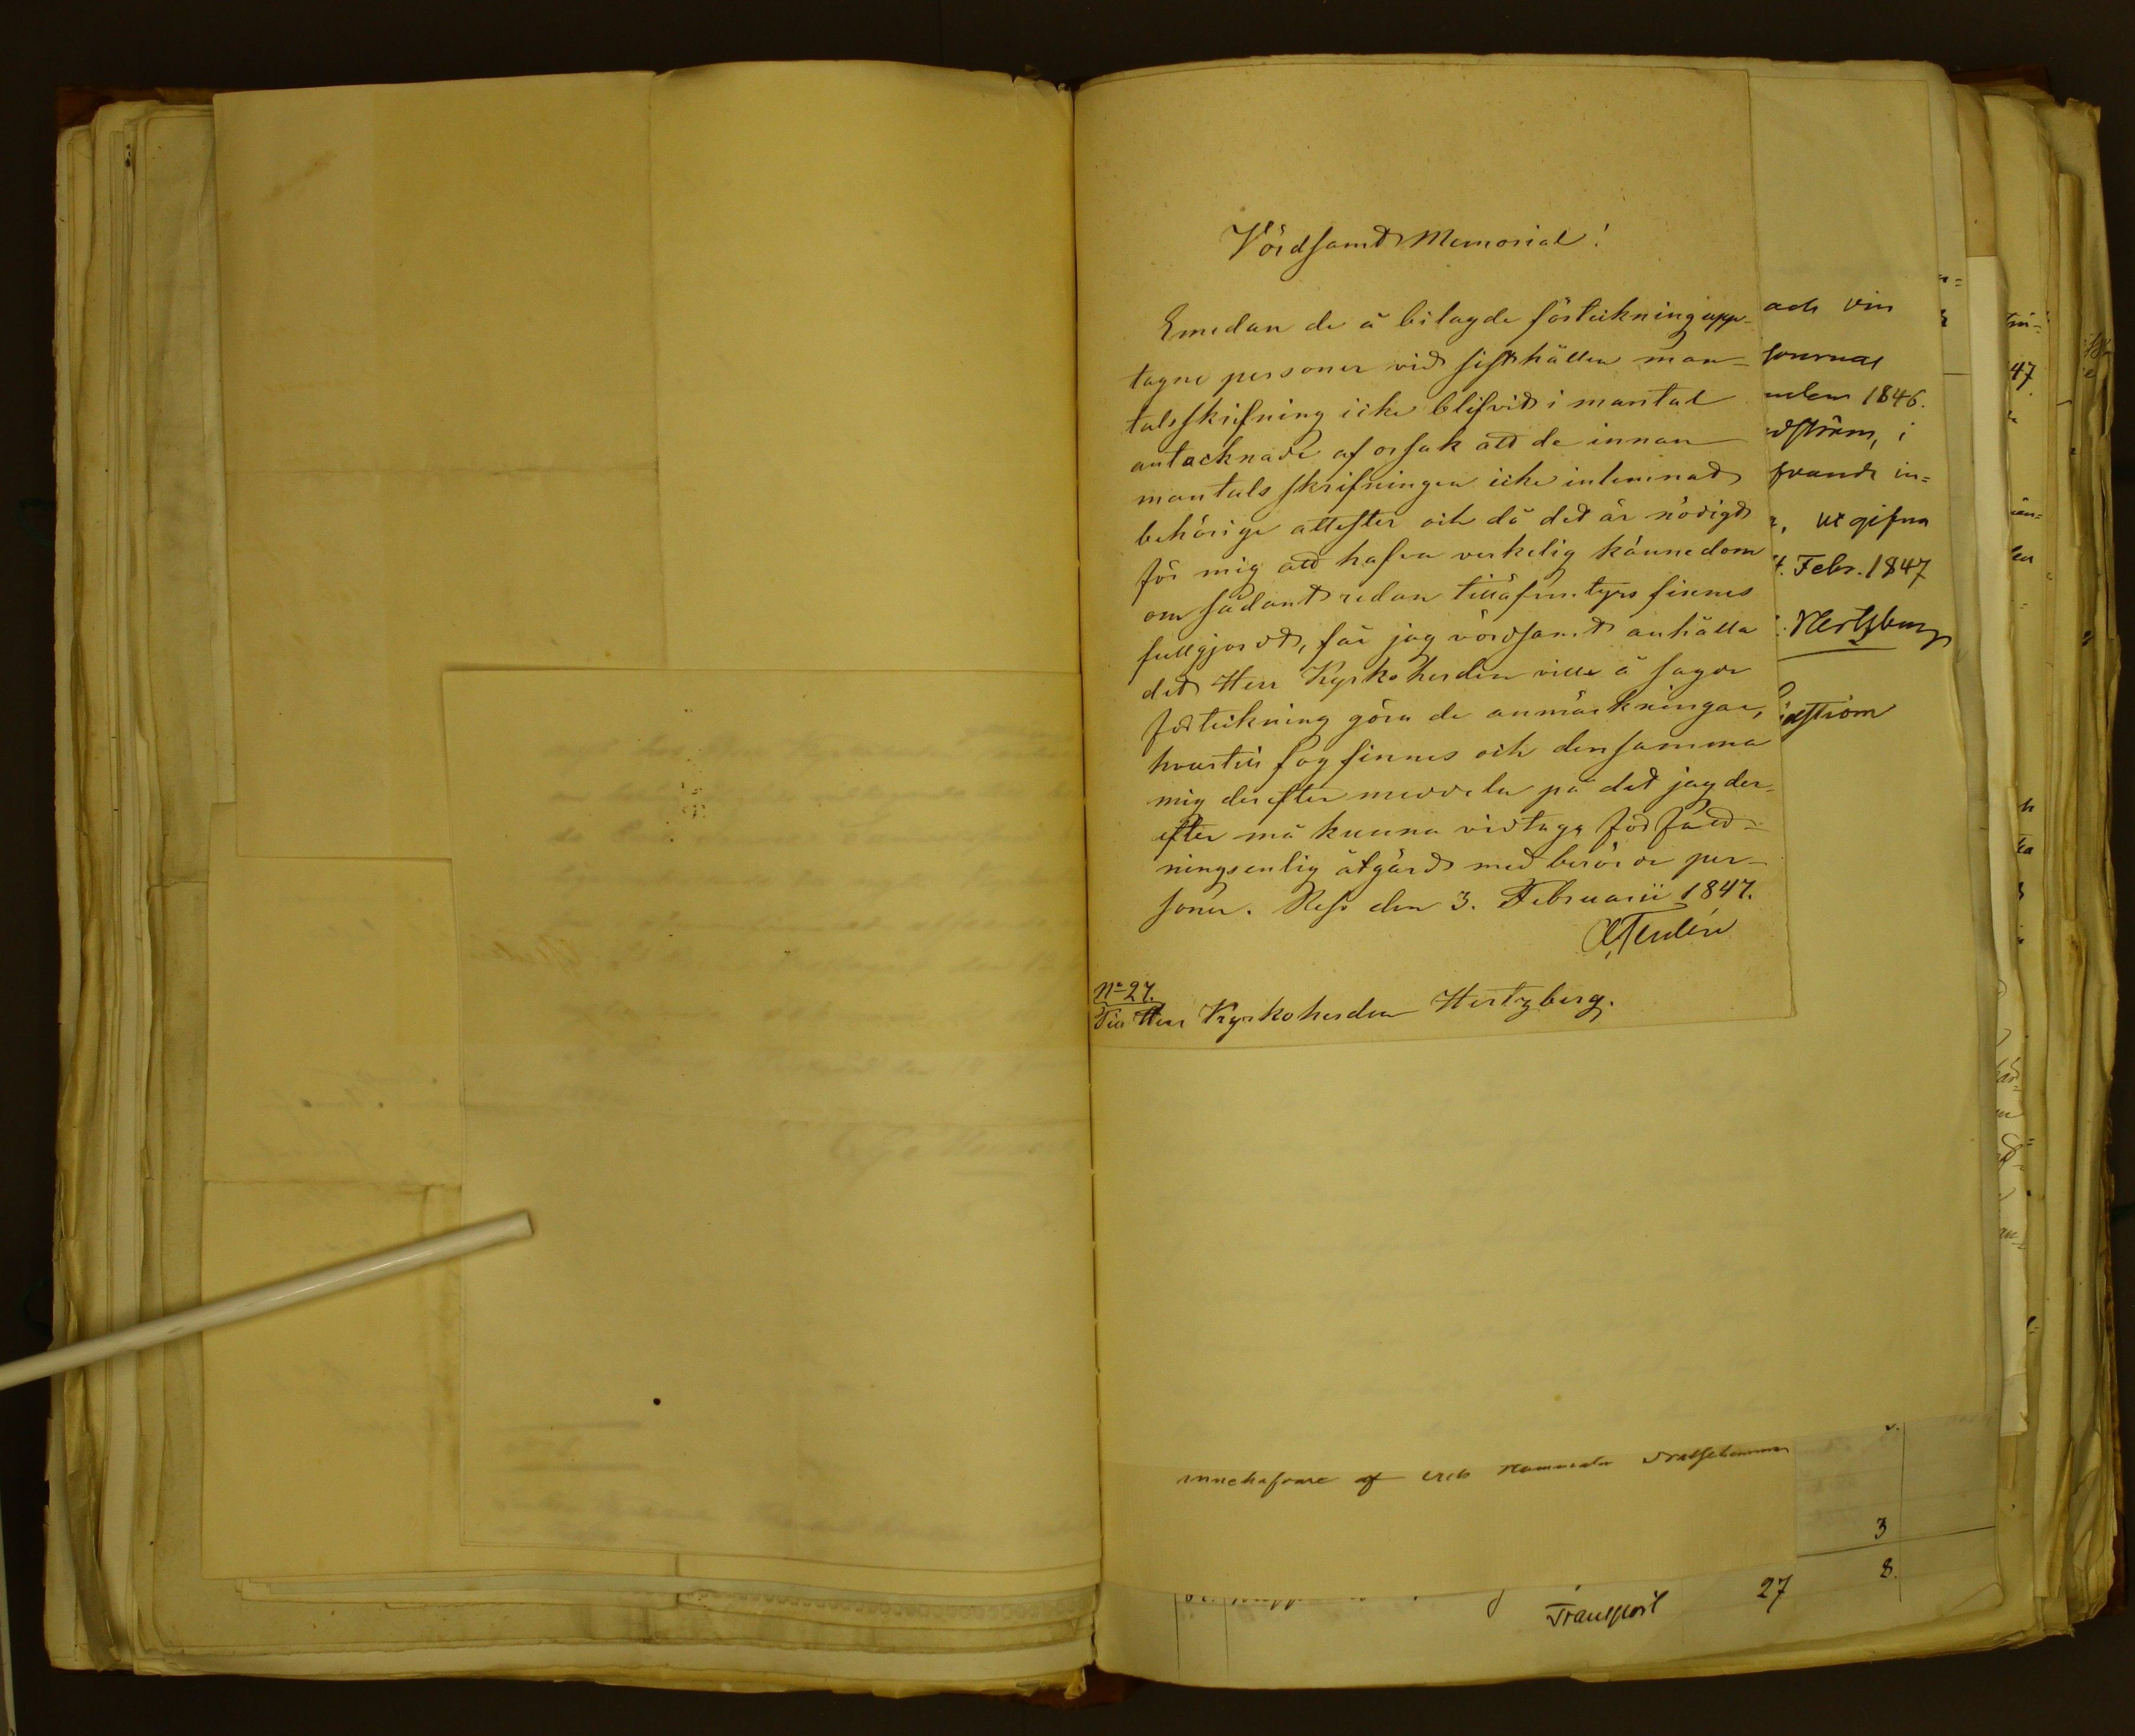 Vördsamt Memorial!
Emedan de å bilagde förteckning upp-
tagne personer vid sisthållen man-
talsskrifning icke blifvit i mantal
antecknade af orsak att de innan
mantals skrifningen icke inlemnat
behörige attester och då det är nödigt
för mig att hafva verkelig kännedom
om sådant redan tilläfventyrs finnes
fullgjordt, får jag vördsamt anhålla
det Herr Kyrkoherden ville å sagde
förteckning göra de anmärkningar,
hvartill fog finnes och densamma
mig derefter meddela på det jag der-
efter må kunna vidtaga författ-
ningsenlig åtgärd med berörde per-
soner. Reso den 3. Februarii 1847.
Nº 27.
Till Herr Kyrkoherden Hertzberg.
och vin
1846.
dström, i
in=
utgifna
4. Febr. 1847
Hertzberg
dström
47
innehafvare af
3
8.
Transport 27